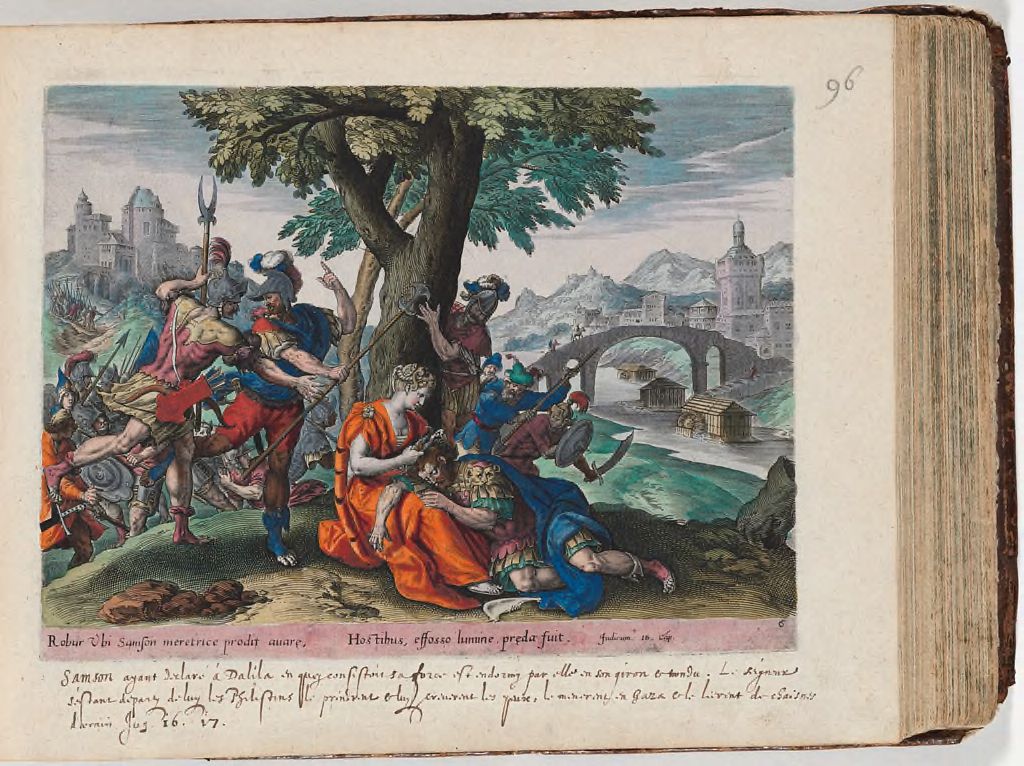 96
Robur Vbi Samson meretrice prodit auarę, Hostibus, effosso lumine, pręda fuit. Judicum. 16. Cap.
6
Samson ayant declaré à Dalila en quoy consistoit sa force est endormy par elle en son giron & tondu. Le seigneur
sestant departy de luy les Philistins le prindrent & luy creverent les yeux, le menerent en Gaza & le lierent de chaisnes
d'erain Jug 16. 17.